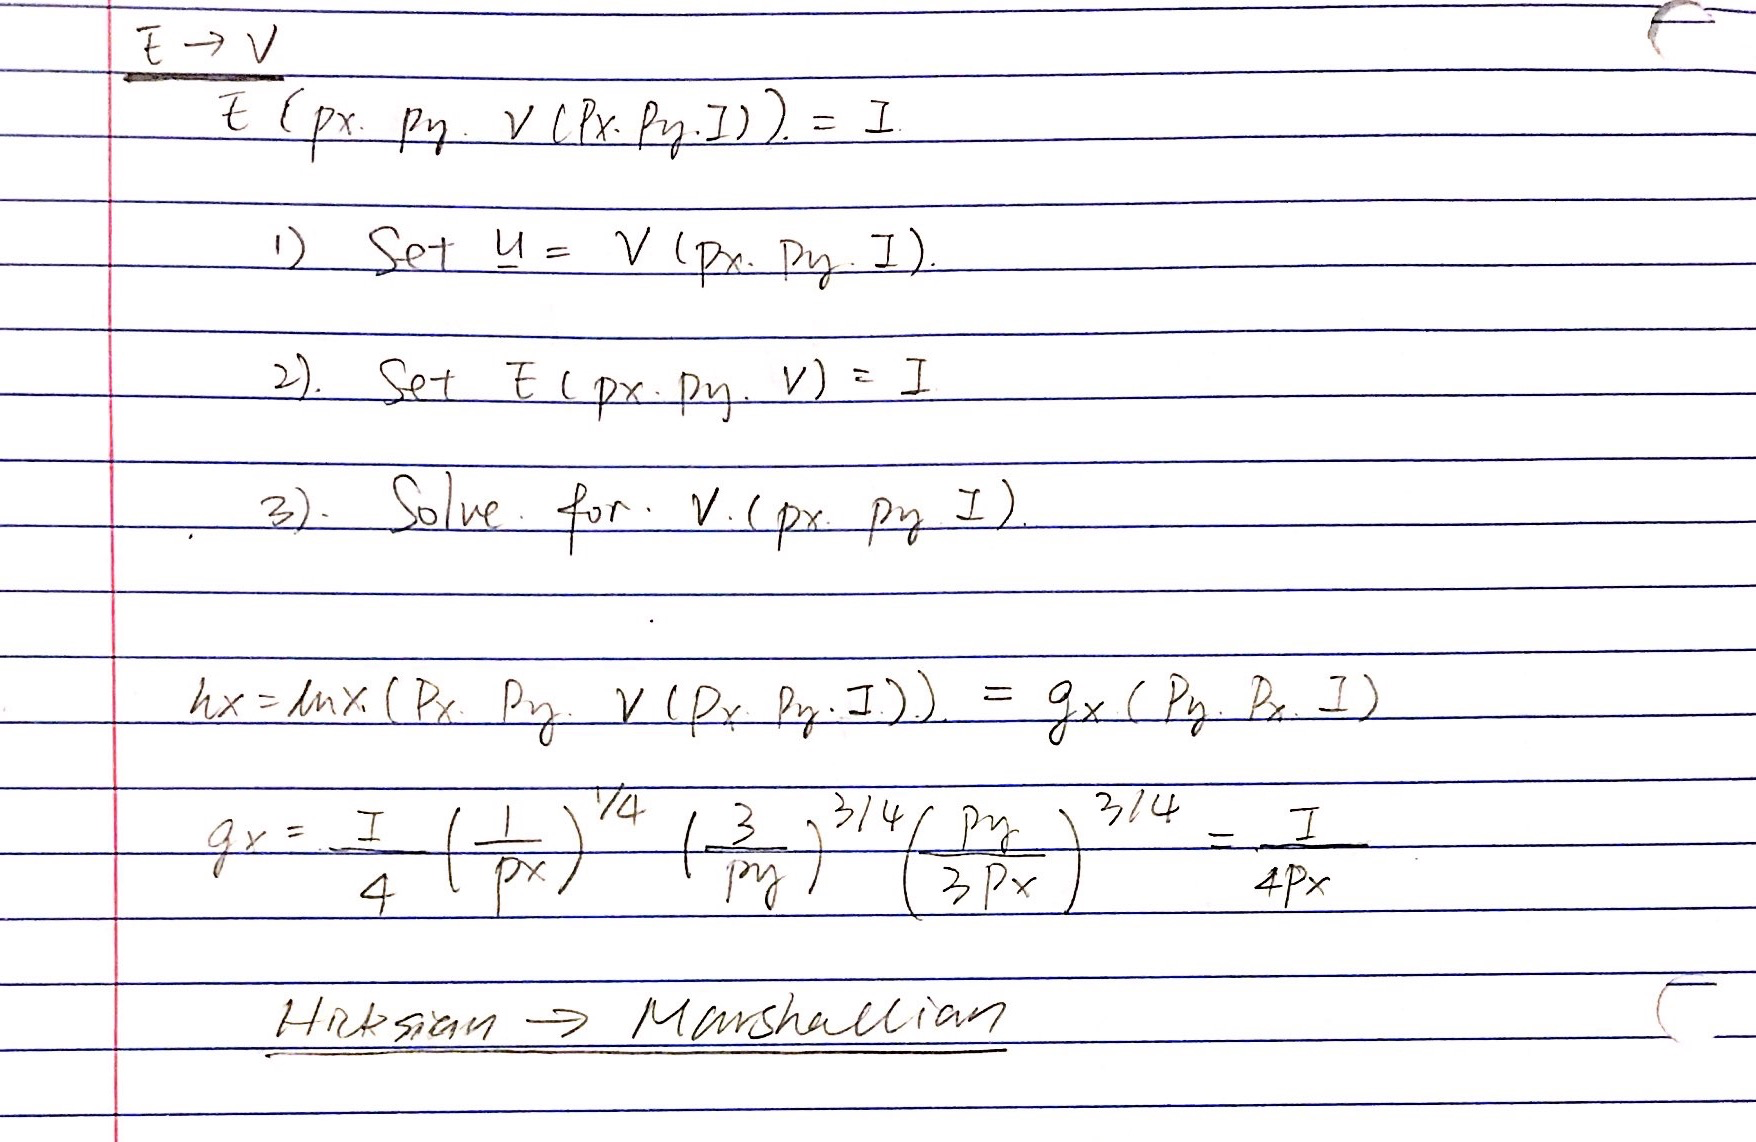 E → V
E (px. py. V (Px. Py. I)). = I.
1) Set u = V (px. py. I).
2). Set E (px. py. V) = I
3). Solve. for. V. (px. py I).
hx = hx. (Px. Py. V (Px. Py. I.)). = gx. (Py. Px. I)
gx = I/4 (1/px)^1/4 (3/py)^3/4 (py/3Px)^3/4 = I/4Px
Hicksian → Marshallian